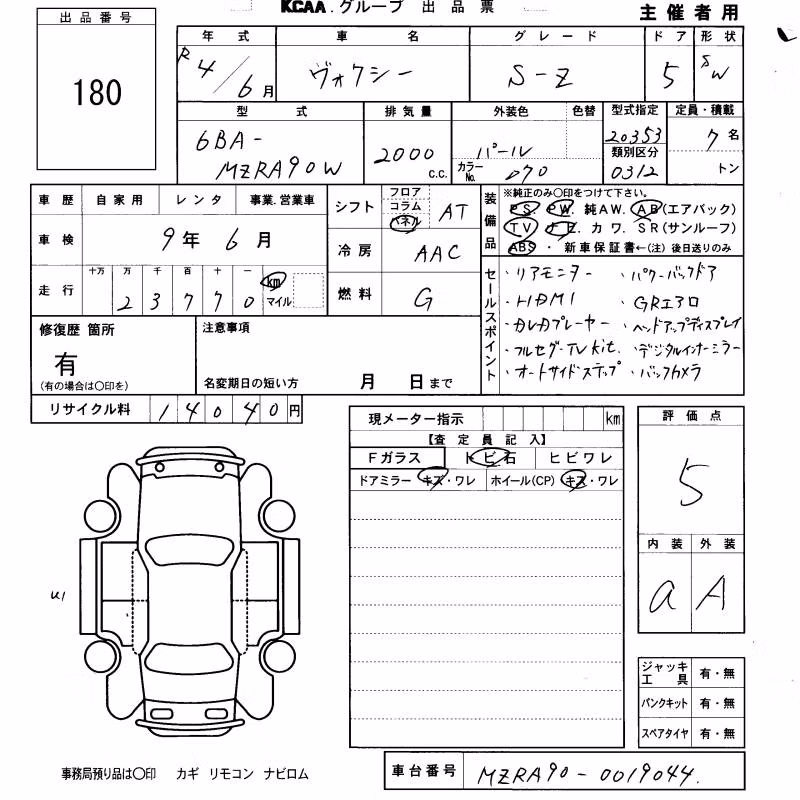 KCAA.グループ 出品票
主催者用
出品番号
180
年式 車名 グレード ドア 形状
R4/6月 ヴォクシー S-Z 5 SW
型式 排気量 外装色 色替 型式指定 定員・積載
6BA-MZRA90W 2000c.c. パール 20353 7名
カラーNo. 070 類別区分 0312 トン
車歴 自家用 レンタ 事業.営業車
車検 9年6月
走行 十万 万 千 百 十 一
23770 km マイル
シフト フロア コラム パネル AT
冷房 AAC
燃料 G
装備品
※純正のみ○印をつけて下さい。
PS. PW. 純AW. AB(エアバック)
TV ナビ. カワ. SR(サンルーフ)
ABS ・ 新車保証書←(注) 後日送りのみ
セールスポイント
・リアモニター ・パワーバックドア
・HDMI ・GRエアロ
・DVDプレーヤー ・ヘッドアップディスプレイ
・フルセグTV kit. ・デジタルインナーミラー
・オートサイドステップ ・バックカメラ
修復歴 箇所
有
(有の場合は○印を)
注意事項
名変期日の短い方 月 日まで
リサイクル料 14040円
現メーター指示 km
【査定員記入】
Fガラス トビ石 ヒビワレ
ドアミラー キズ・ワレ ホイール(CP) キズ・ワレ
評価点
5
内装 外装
a A
U1
ジャッキ工具 有・無
パンクキット 有・無
スペアタイヤ 有・無
事務局預り品は○印 カギ リモコン ナビロム
車台番号 MZRA90-0019044.